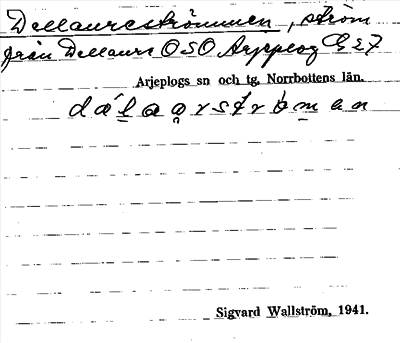 Dellaurestrømmen, ström
från Dellaure OSO Arjeplog G 27
Arjeplogs sn och tg, Norrbottens län.
dálaạrstrømen
Sigvard Wallström, 1941.